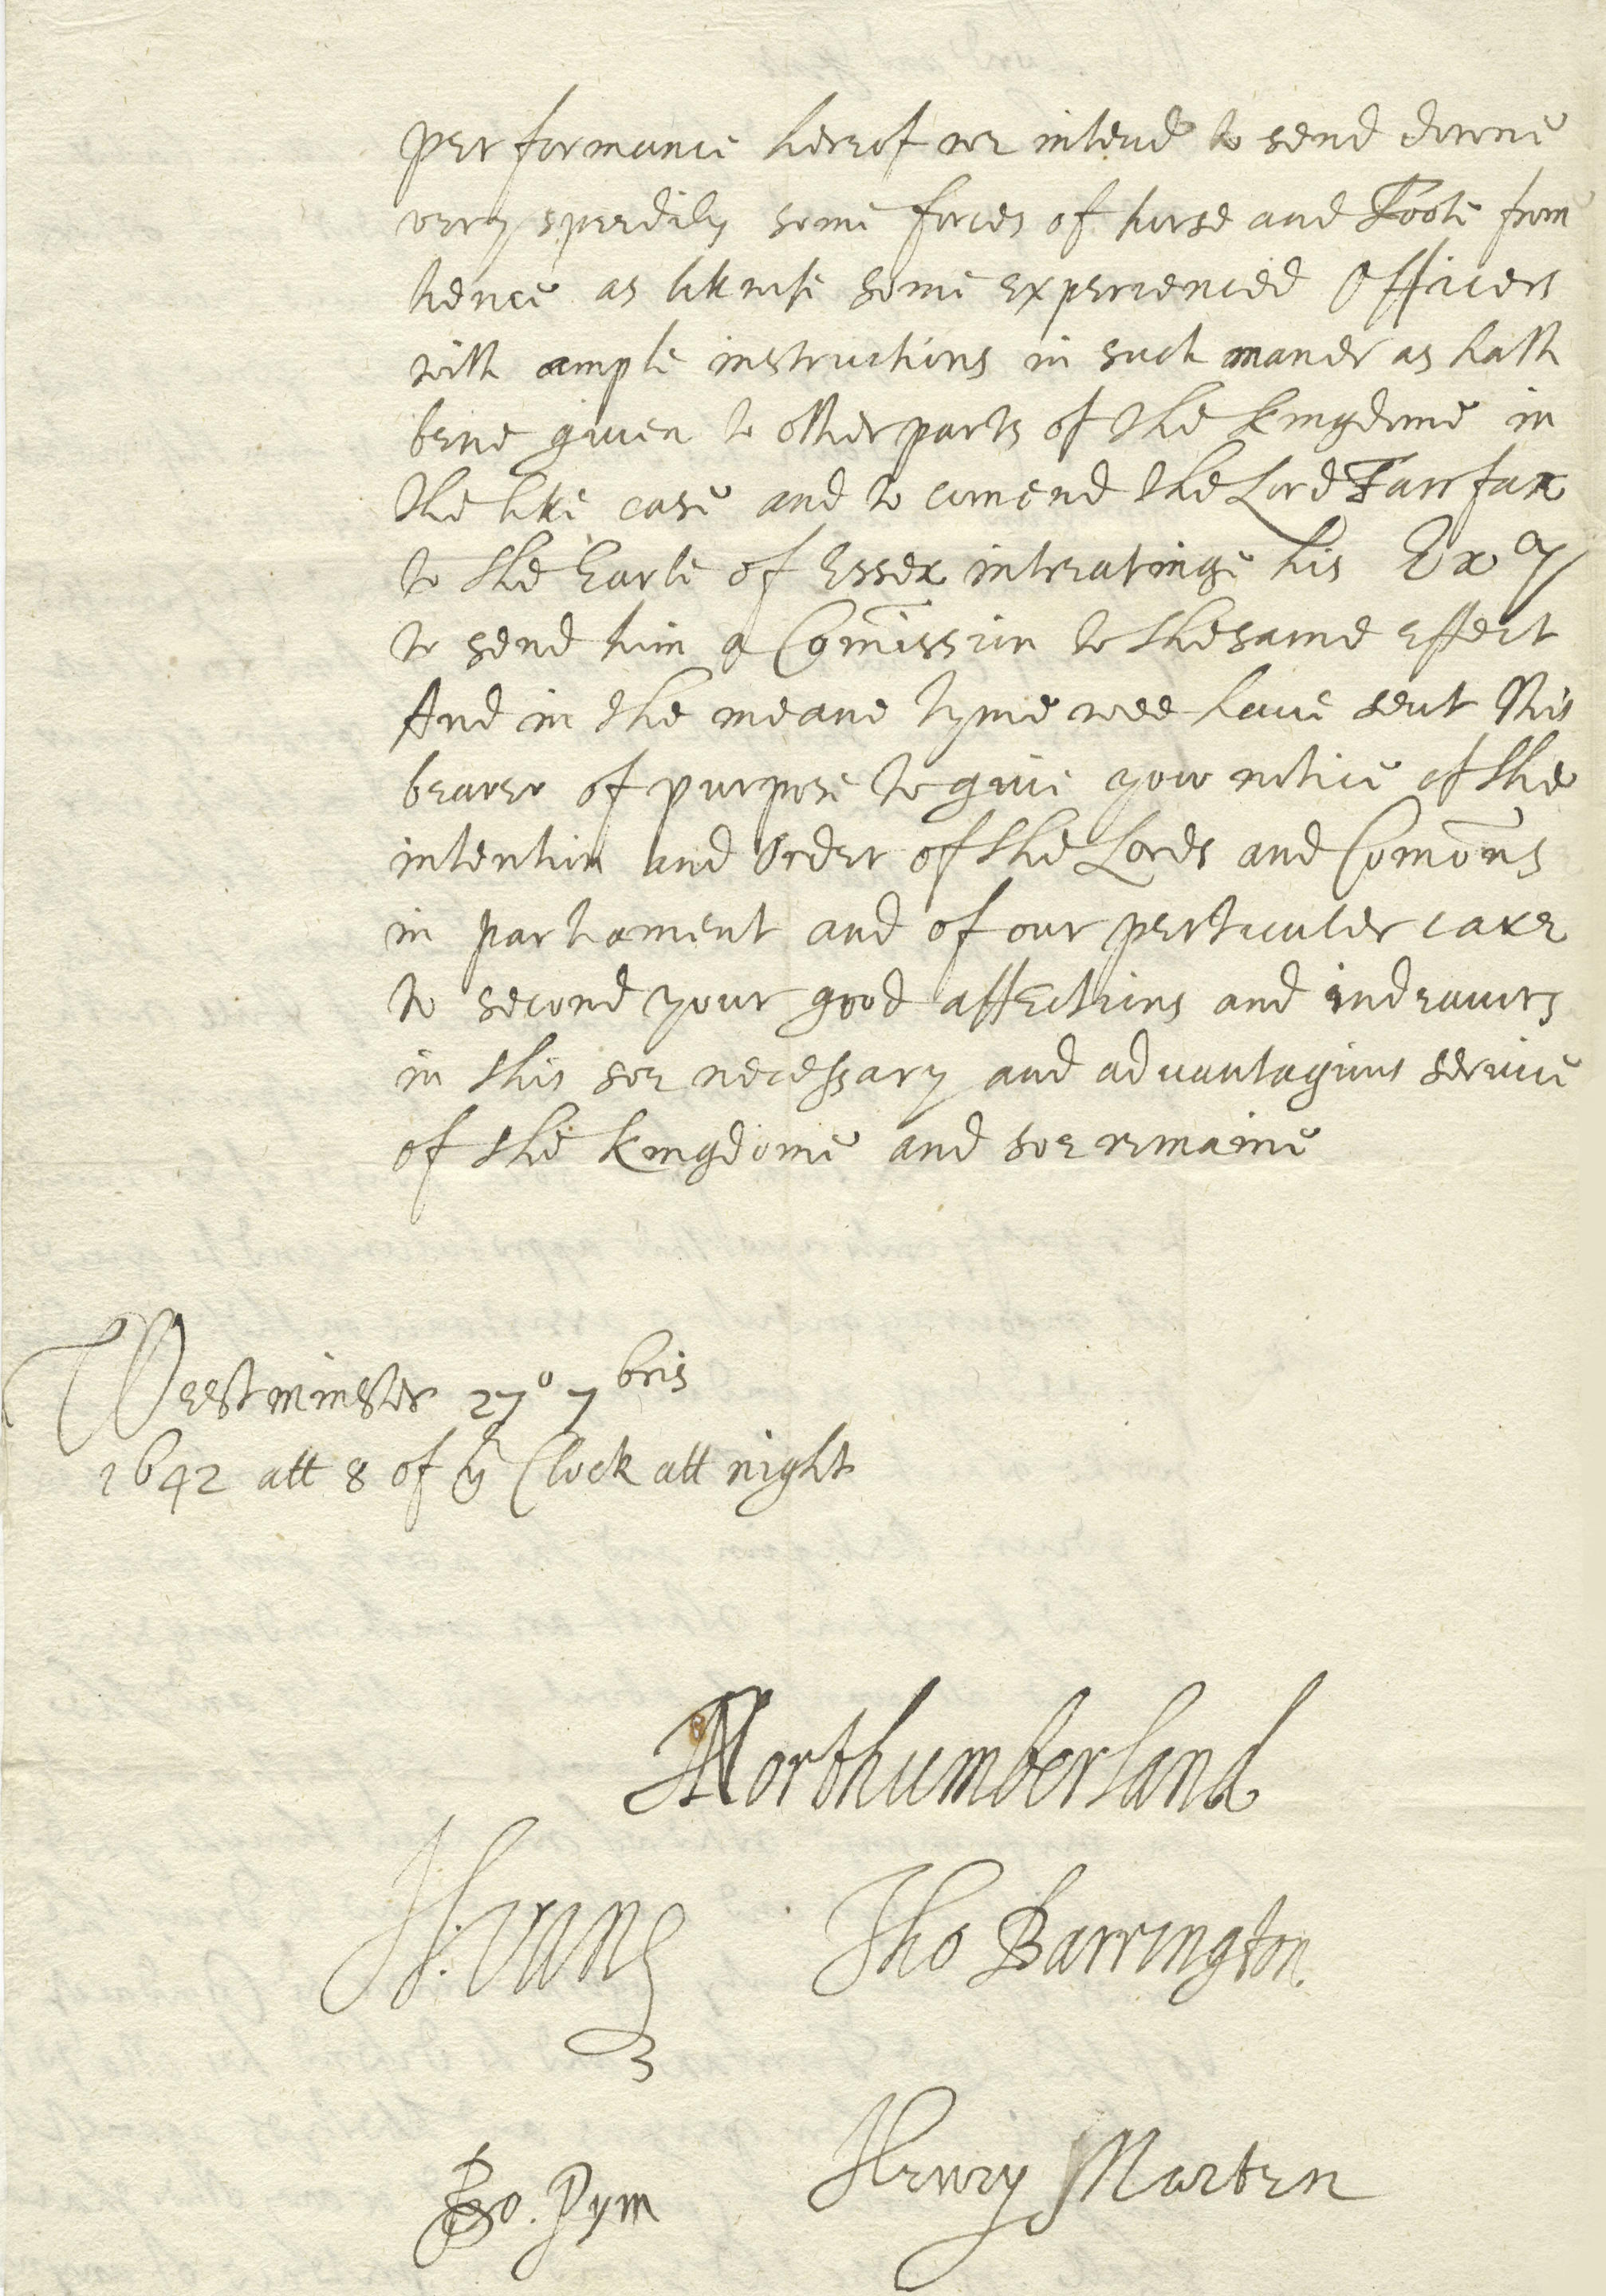 performance hereof wee intend to send downe
very speedily some forces of horse and Foote from
hence as likwise some experienced Officers
with ample instructions in such maner as hath
bene given to other parts of the kingdome in
the like case and to comend the Lord Fairfax
to the Earle of Essex intreatinge his Excy
to send him a Comission to the same effect
And in the meane tyme wee have sent this
bearer of purpose to give your notice of the
intention and Order of the Lords and Comons
in parliament and of our perticuler care
to second your good affections and indeavurs
in this soe necessary and advantagious service
of the kingdome and soe remaine
Weestminster 27º 7bris
1642 att 8 of ye Clock att night
Northumberland
H. Vane
Tho Barrington.
Jo. Pym
Henry Marten